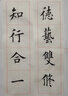 德藝雙脩
知行合一